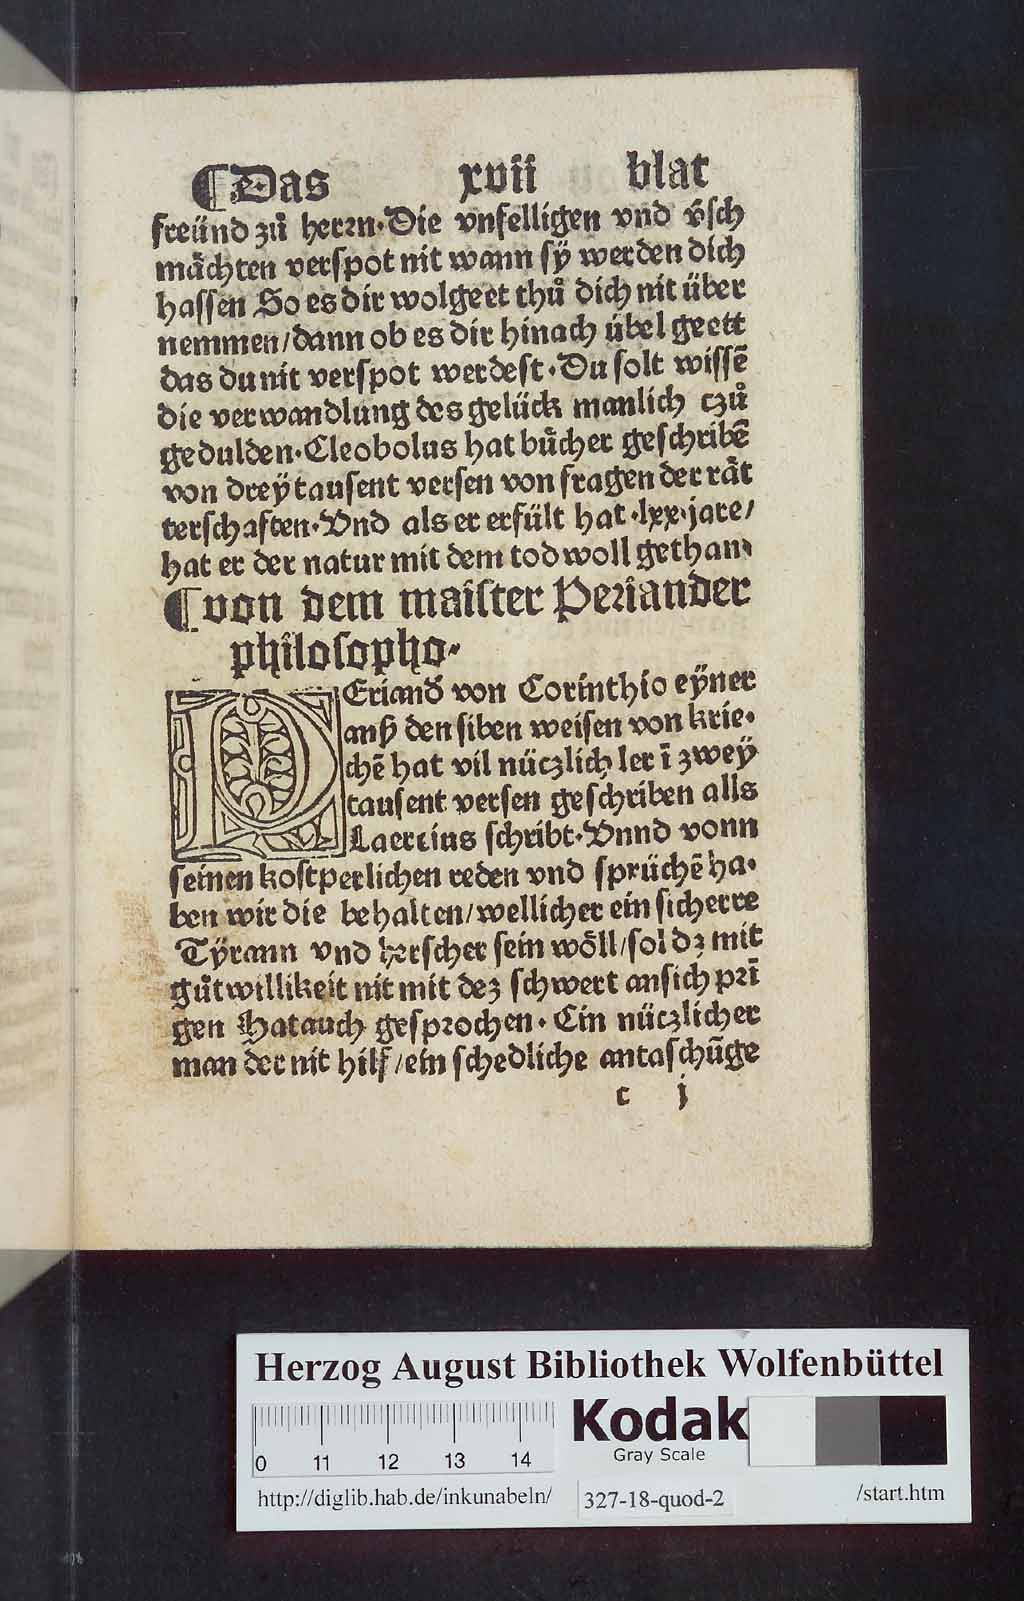 ¶Das xvii blat
freünd zů herrn·Die vnselligen vnd v̄sch
mächten verspot nit wann sÿ werden dich
hassen So es dir wolgeet thů dich nit über
nemmen/dann ob es dir hinach übel geett
das du nit verspot werdest·Du solt wissē
die verwandlung des gelück manlich czů
gedulden·Cleobolus hat bůcher geschribē
von dreÿtausent versen von fragen der rät
terschaften·Vnd als er erfült hat·lxx·jare/
hat er der natur mit dem tod woll gethan·
¶von dem maister Periander
philosopho·
PEriand̄ von Corinthio eÿner
auß den siben weisen von krie·
chē hat vil nüczlich ler ī zweÿ
tausent versen geschriben alls
Laercius schribt·Vnnd vonn
seinen kostperlichen reden vnd sprüchē ha·
ben wir die behalten/wellicher ein sicherre
Tÿrann vnd herscher sein wöll/sol dz mit
gůtwillikeit nit mit dez schwert an sich prī
gen Hat auch gesprochen·Ein nüczlicher
man der nit hilf/ein schedliche antaschūge
c j
Herzog August Bibliothek Wolfenbüttel
0 11 12 13 14
Kodak
Gray Scale
http://diglib.hab.de/inkunabeln/ 327-18-quod-2 /start.htm